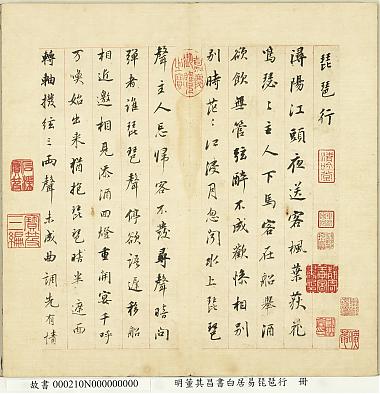 琵琶行
潯陽江頭夜送客楓葉荻花
鳴瑟〻主人下馬客在船舉酒
欲飲無管弦醉不成歡慘相別
別時茫〻江浸月忽聞水上琵琶
聲主人忘歸客不發尋聲暗問
彈者誰琵琶聲停欲語遲移船
相近邀相見添酒回燈重開宴千呼
万喚始出来猶抱琵琶時半遮面
轉軸撥弦三兩聲未成曲調先有情
嘉慶御覽之寶
石渠寶笈
寶笈三編
故書 000210N000000000 明董其昌書白居易琵琶行 冊